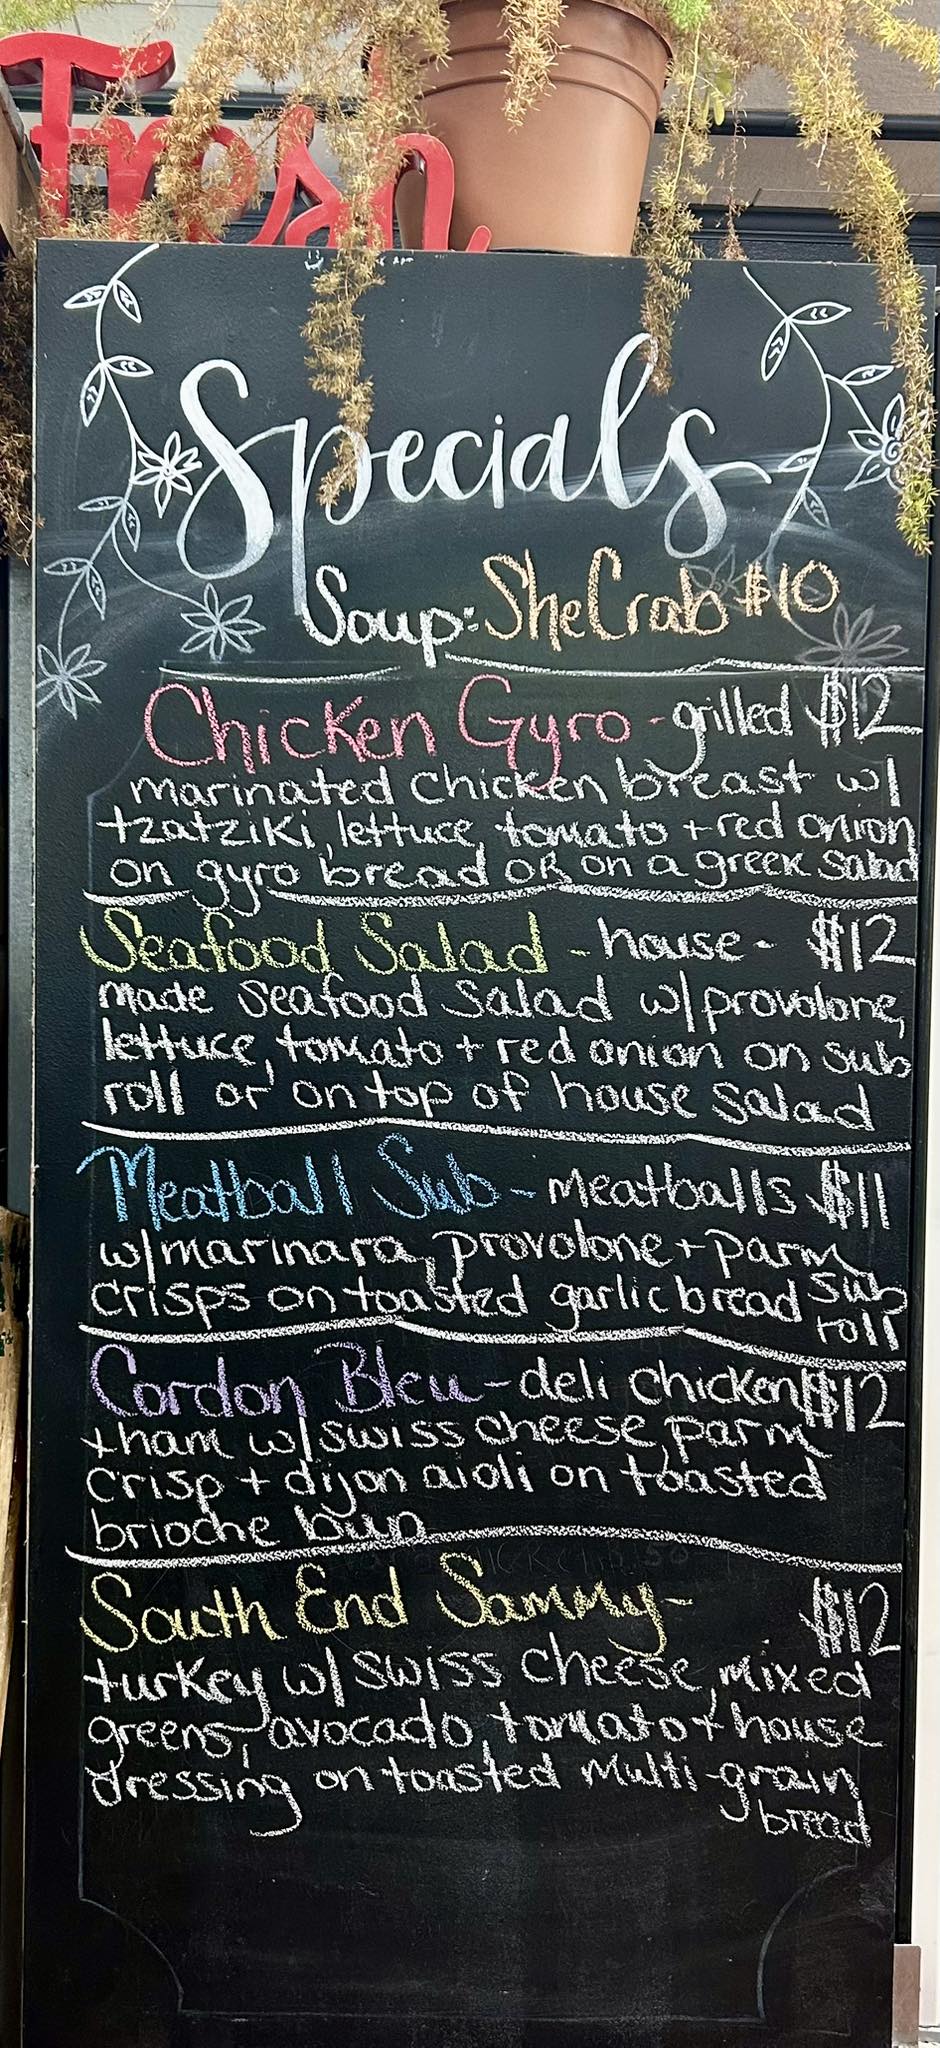 Fresh
Specials
Soup: SheCrab $10
Chicken Gyro - grilled $12
marinated chicken breast w/
tzatziki, lettuce, tomato + red onion
on gyro bread OR on a greek salad
Seafood Salad - house- $12
made seafood salad w/provolone,
lettuce, tomato + red onion on sub
roll or on top of house salad
Meatball Sub - meatballs $11
w/marinara, provolone + parm
crisps on toasted garlic bread sub
roll
Cordon Bleu - deli chicken $12
+ham w/swiss cheese, parm
crisp + dijon aioli on toasted
brioche bun
South End Sammy - $12
turkey w/swiss cheese, mixed
greens, avocado, tomato + house
dressing on toasted multi-grain
bread